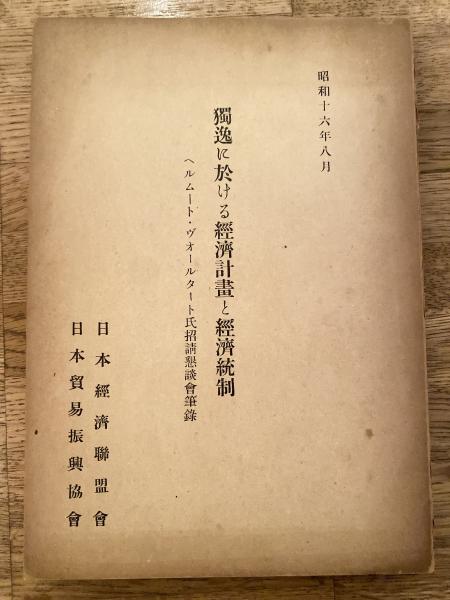 昭和十六年八月
獨逸に於ける經濟計畫と經濟統制
ヘルムート・ヴォールタート氏招請懇談會筆錄
日本經濟聯盟會
日本貿易振興協會